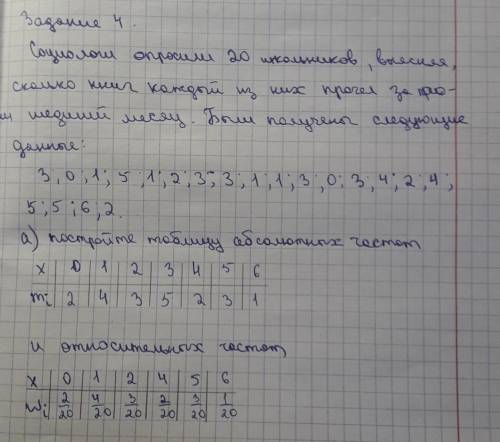 Задание 4.
Социологи опросили 20 школьников, выясняя,
сколько книг каждый из них прочел за про-
шедший месяц. Были получены следующие
данные:
3; 0; 1; 5; 1; 2; 3; 3; 1; 1; 3; 0; 3; 4; 2; 4;
5; 5; 6; 2.
а) постройте таблицу абсолютных частот
x | 0 | 1 | 2 | 3 | 4 | 5 | 6
mi | 2 | 4 | 3 | 5 | 2 | 3 | 1
и относительных частот
x | 0 | 1 | 2 | 4 | 5 | 6
Wi | 2/20 | 4/20 | 3/20 | 2/20 | 3/20 | 1/20